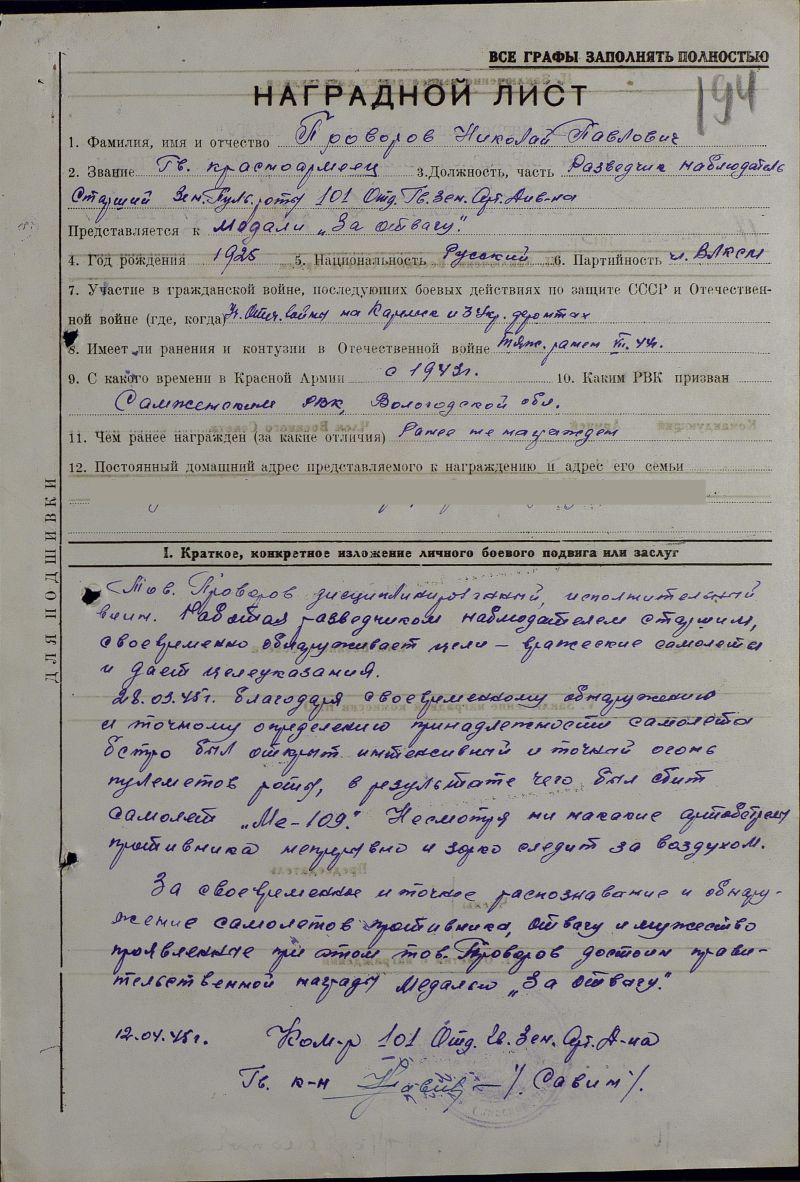 ВСЕ ГРАФЫ ЗАПОЛНЯТЬ ПОЛНОСТЬЮ
194
НАГРАДНОЙ ЛИСТ
1. Фамилия, имя и отчество Проворов Николай Павлович
2. Звание Гв. красноармеец 3.Должность, часть Разведчик наблюдатель
Старший Зен. Пульроты 101 Отд. Гв. Зен. Арт. Див-на
Представляется к Медали „За отвагу".
4. Год рождения 1925 5. Национальность Русский 6. Партийность чл. ВЛКСМ
7. Участие в гражданской войне, последующих боевых действиях по защите СССР и Отечествен-
ной войне (где, когда) Уч. Отеч. войны на Карельск и 3 Укр. фронтах
8. Имеет ли ранения и контузии в Отечественной войне тяж. ранен 44г.
9. С какого времени в Красной Армии с 1943г. 10. Каким РВК призван
Самженским РВК, Вологодской обл.
11. Чем ранее награжден (за какие отличия) Ранее не награжден
12. Постоянный домашний адрес представляемого к награждению и адрес его семьи
ДЛЯ ПОДШИВКИ
I. Краткое, конкретное изложение личного боевого подвига или заслуг
Тов. Проворов дисциплинированный, исполнительный
воин. Работая разведчиком наблюдателем старшим,
своевременно обнаруживает цели – вражеские самолеты
и дает целеуказания.
28.03.45г. благодаря своевременному обнаружению
и точному определению принадлежности самолета
быстро был открыт интенсивный и точный огонь
пулеметов роты, в результате чего был сбит
самолет „Ме-109". Несмотря ни на какие артобстрелы
противника непрерывно и зорко следит за воздухом.
За своевременные и точные распознавание и обнару-
жение самолетов противника, отвагу и мужество
проявленные при этом тов. Проворов достоин прави-
тельственной награды Медалью „За отвагу".
12.04.45г. Ком-р 101 Отд. Гв. Зен. Арт. Д-на
Гв. к-н /. Савин /.